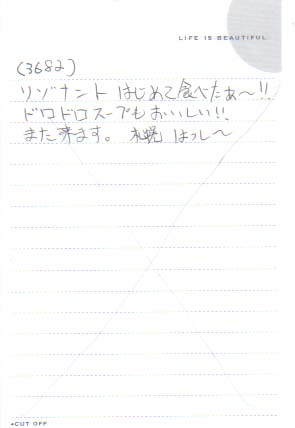 LIFE IS BEAUTIFUL
(3682)
リゾナント はじめて食べたぁ〜!!
ドロドロスープもおいしい!!
また来ます。 札幌 はっしー
+CUT OFF